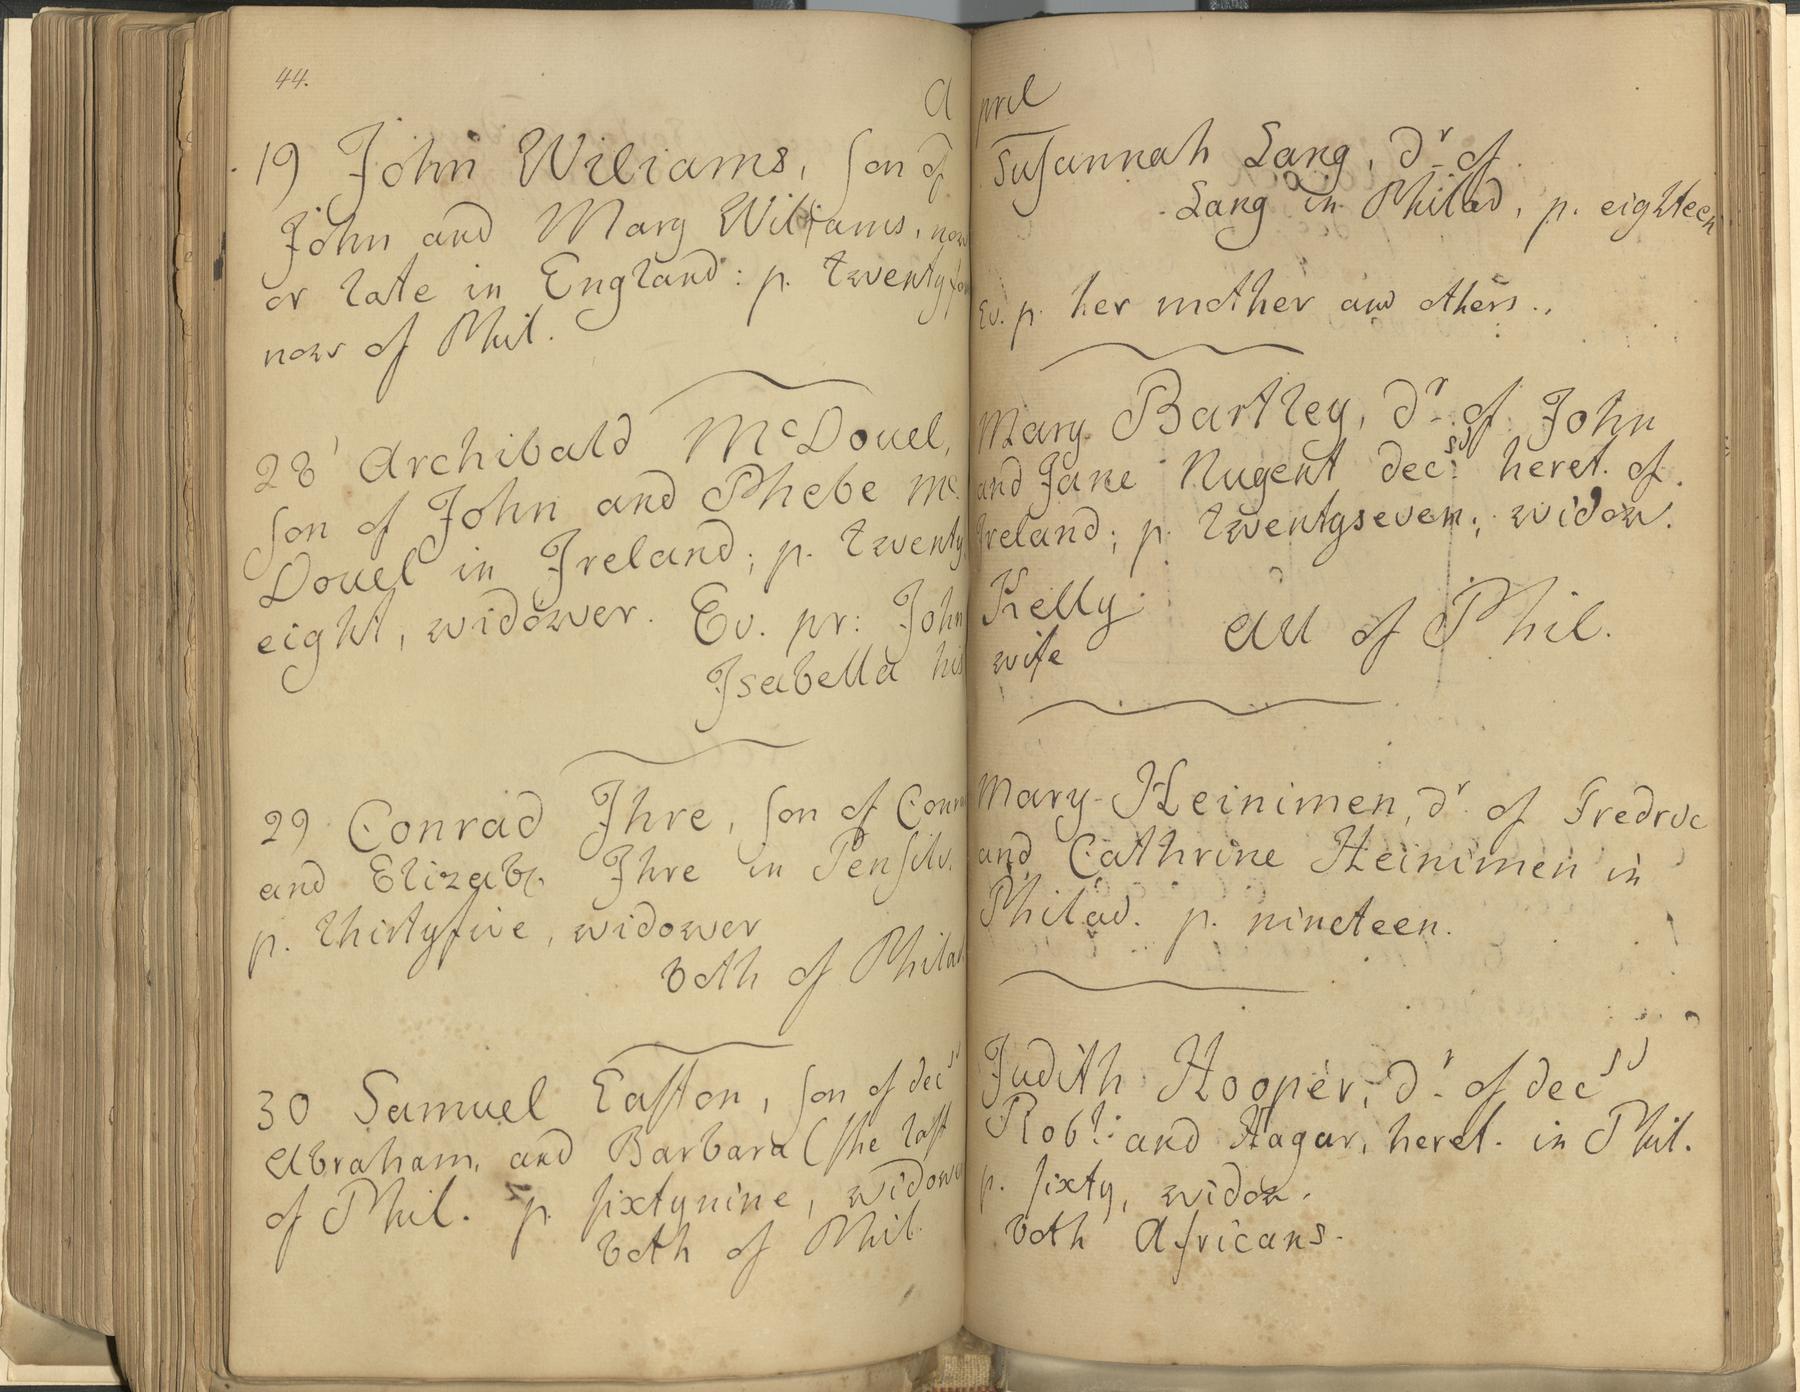 44.
A
19 John Wiliams, son of
John and Mary Wiliams, now
or late in England: p. twenty
now of Phil.
28 Archibald McDouel,
son of John and Phebe Mc
Douel in Ireland; p. twenty
eight, widower. Ev. pr: John
Isabella his
29 Conrad Ihre, son of Conr
and Elizab. Ihre in Pensilv.
p. thirtyfive, widower
both of Philad
30 Samuel Easton, son of decsd
Abraham, and Barbara (the last
of Phil. p. sixtynine, widower
both of Phil.
pril
Susannah Lang, dr. of
Lang in Philad, p. eighteen
Ev. p. her mother and others.
Mary Bartley, dr. of John
and Jane Nugent decsd. heret. of
Ireland; p. twentyseven; widow.
Kelly
All of Phil.
wife
Mary Heinimen, dr. of Fredric
and Cathrine Heinimen in
Philad. p. nineteen.
Judith Hooper, dr. of decsd
Robt: and Hagar, heret. in Phil.
p. sixty, widow.
both Africans.